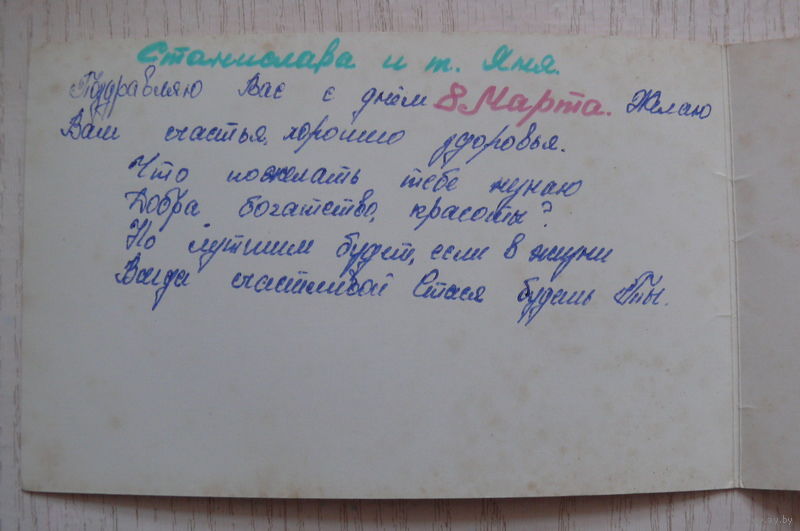 Станислава и т. Яня.
Поздравляю Вас с днём 8 Марта. Желаю
Вам счастья, хорошо здоровья.
Что пожелать тебе незнаю
Добра богатство, красоты?
Но лутшим будет, если в жизни
Всегда счастливой Стася будешь Ты.
ay.by